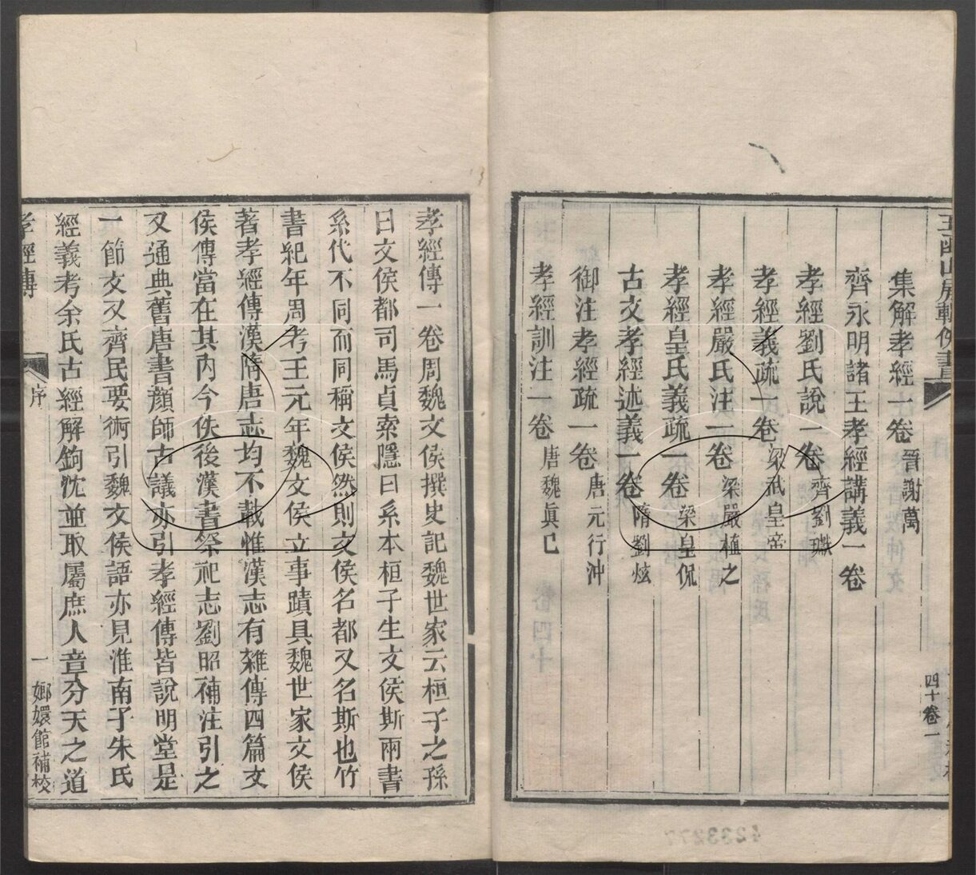 玉函山房輯佚書
集解孝經一卷 晉謝萬
齊永明諸王孝經講義一卷
孝經劉氏說一卷 齊劉瓛
孝經義疏一卷 梁武皇帝
孝經嚴氏注一卷 梁嚴植之
孝經皇氏義疏一卷 梁皇侃
古文孝經述義一卷 隋劉炫
御注孝經疏一卷 唐元行沖
孝經訓注一卷 唐魏真己
四十卷一
孝經傳一卷周魏文侯撰史記魏世家云桓子之孫
曰文侯都司馬貞索隱曰系本桓子生文侯斯兩書
系代不同而同稱文侯然則文侯名都又名斯也竹
書紀年周考王元年魏文侯立事蹟具魏世家文侯
著孝經傳漢隋唐志均不載惟漢志有雜傳四篇文
侯傳當在其內今佚後漢書祭祀志劉昭補注引之
又通典舊唐書顏師古議亦引孝經傳皆說明堂是
一節文又齊民要術引魏文侯語亦見淮南子朱氏
經義考余氏古經解鉤沈並取屬庶人章分天之道
孝經傳
序
一
嫏嬛館補校
4233277